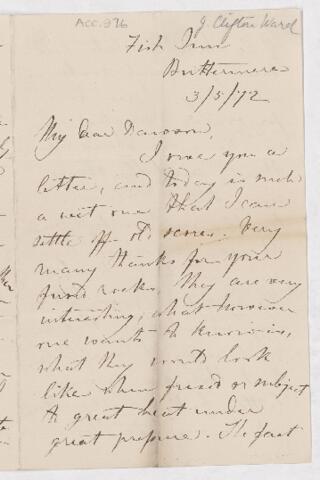 Acc. 976
J Clifton Ward
Fish Inn
Buttermere
3/5/72
My dear Dawson,
I owe you a
letter, and today is such
a wet one that I can
settle off old scores. Very
many thanks for your
fused rocks, they are very
interesting; what however
one wants to know is,
what they would look
like when fused or subject
to great heat under
great pressure. The fact